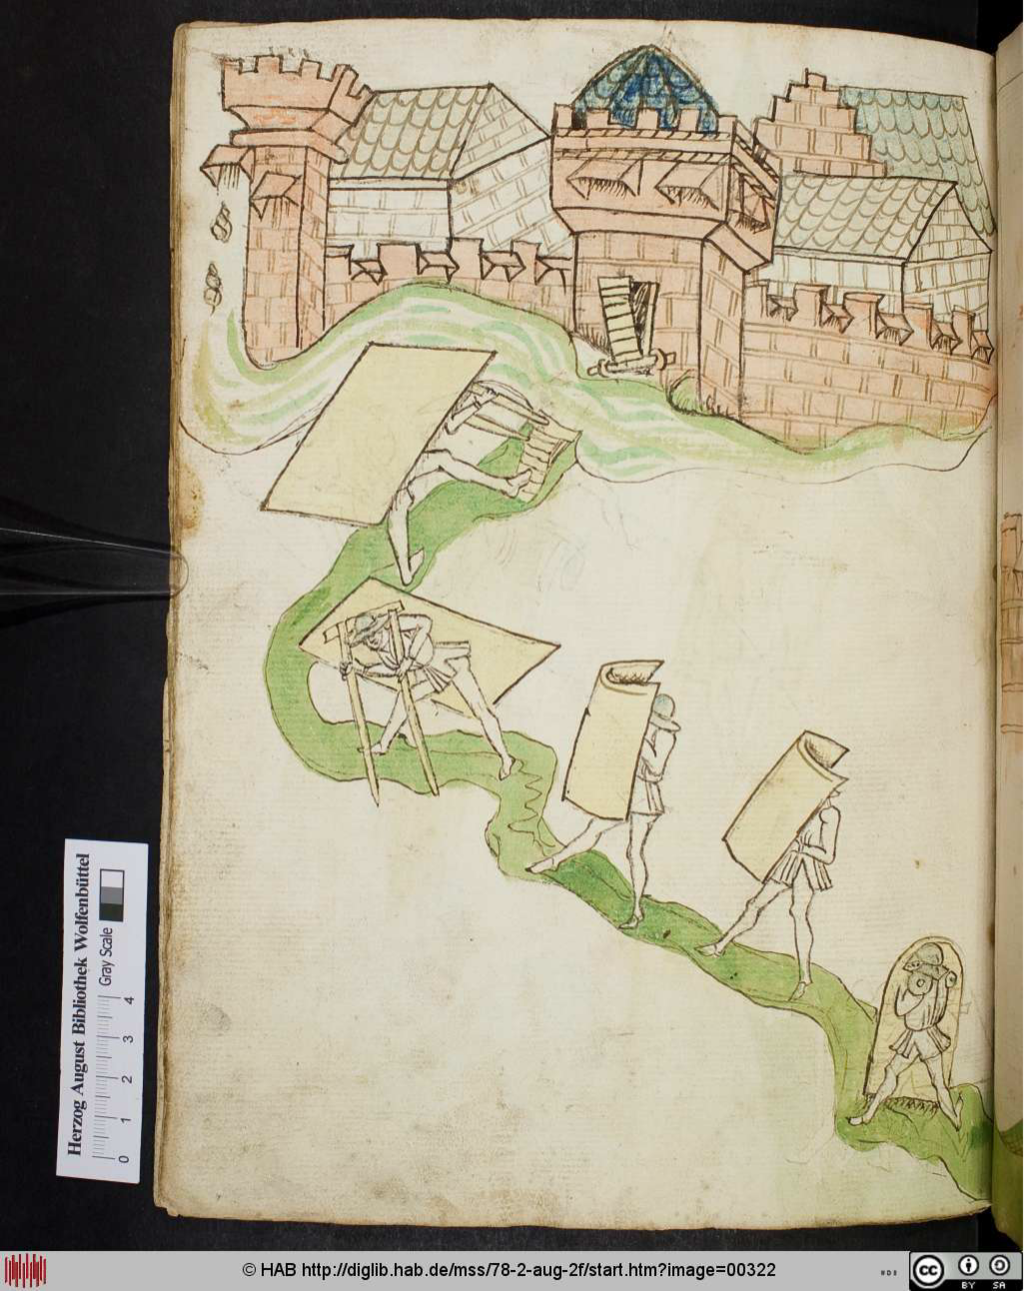 Herzog August Bibliothek Wolfenbüttel
Gray Scale
0 1 2 3 4
© HAB http://diglib.hab.de/mss/78-2-aug-2f/start.htm?image=00322
cc BY SA